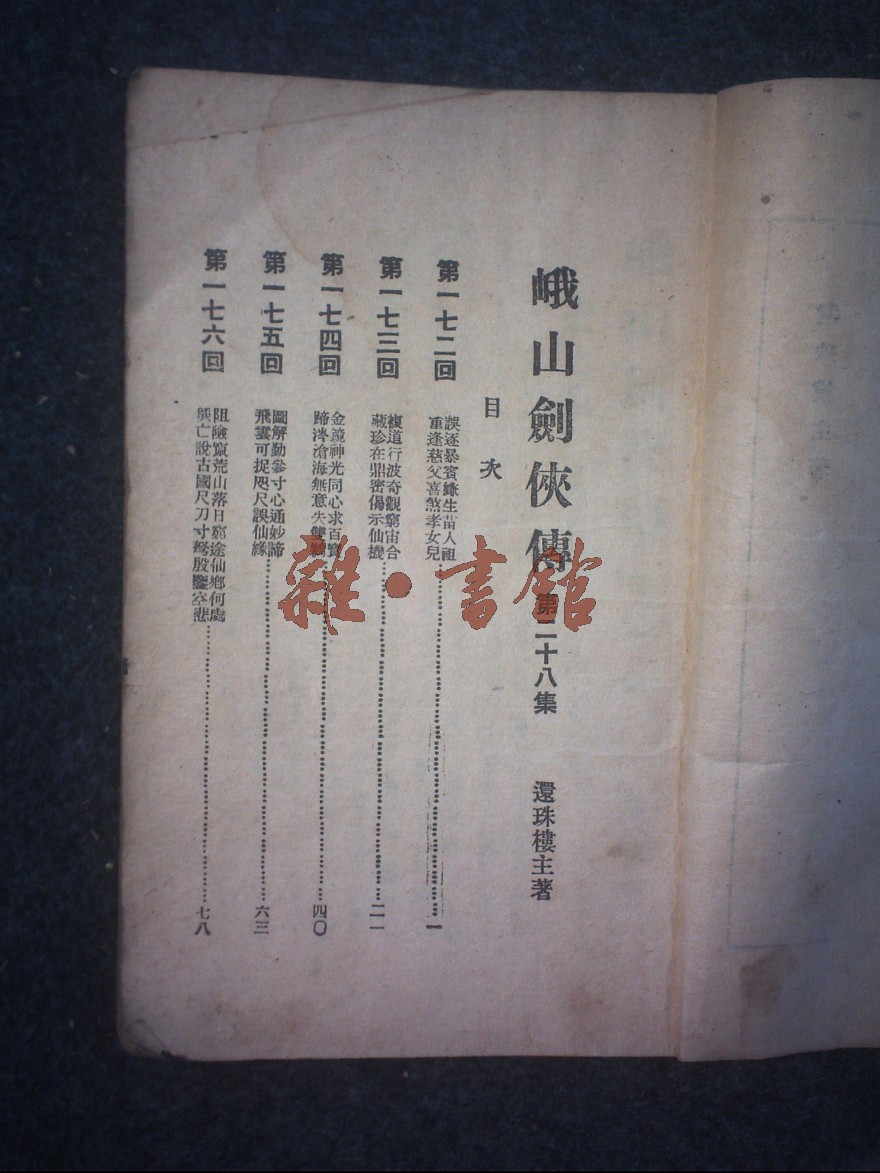 峨山劍俠傳 第二十八集 還珠樓主著
目次
第一七二回
誤逐暴賓生苗人祖
重逢慈父喜煞孝女兒……一
第一七三回
複道行波奇觀窮宙合
藏珍在鼎密偈示仙機……二一
第一七四回
金鏡神光同心求百寶
蹄涔滄海無意失雙……四〇
第一七五回
圖解勤參寸心通妙諦
飛雲可捉咫尺誤仙緣……六三
第一七六回
阻險竄荒山落日窮途仙鄉何處
興亡說古國尺刀寸弩殷鑒空悲……七八
雜·書館